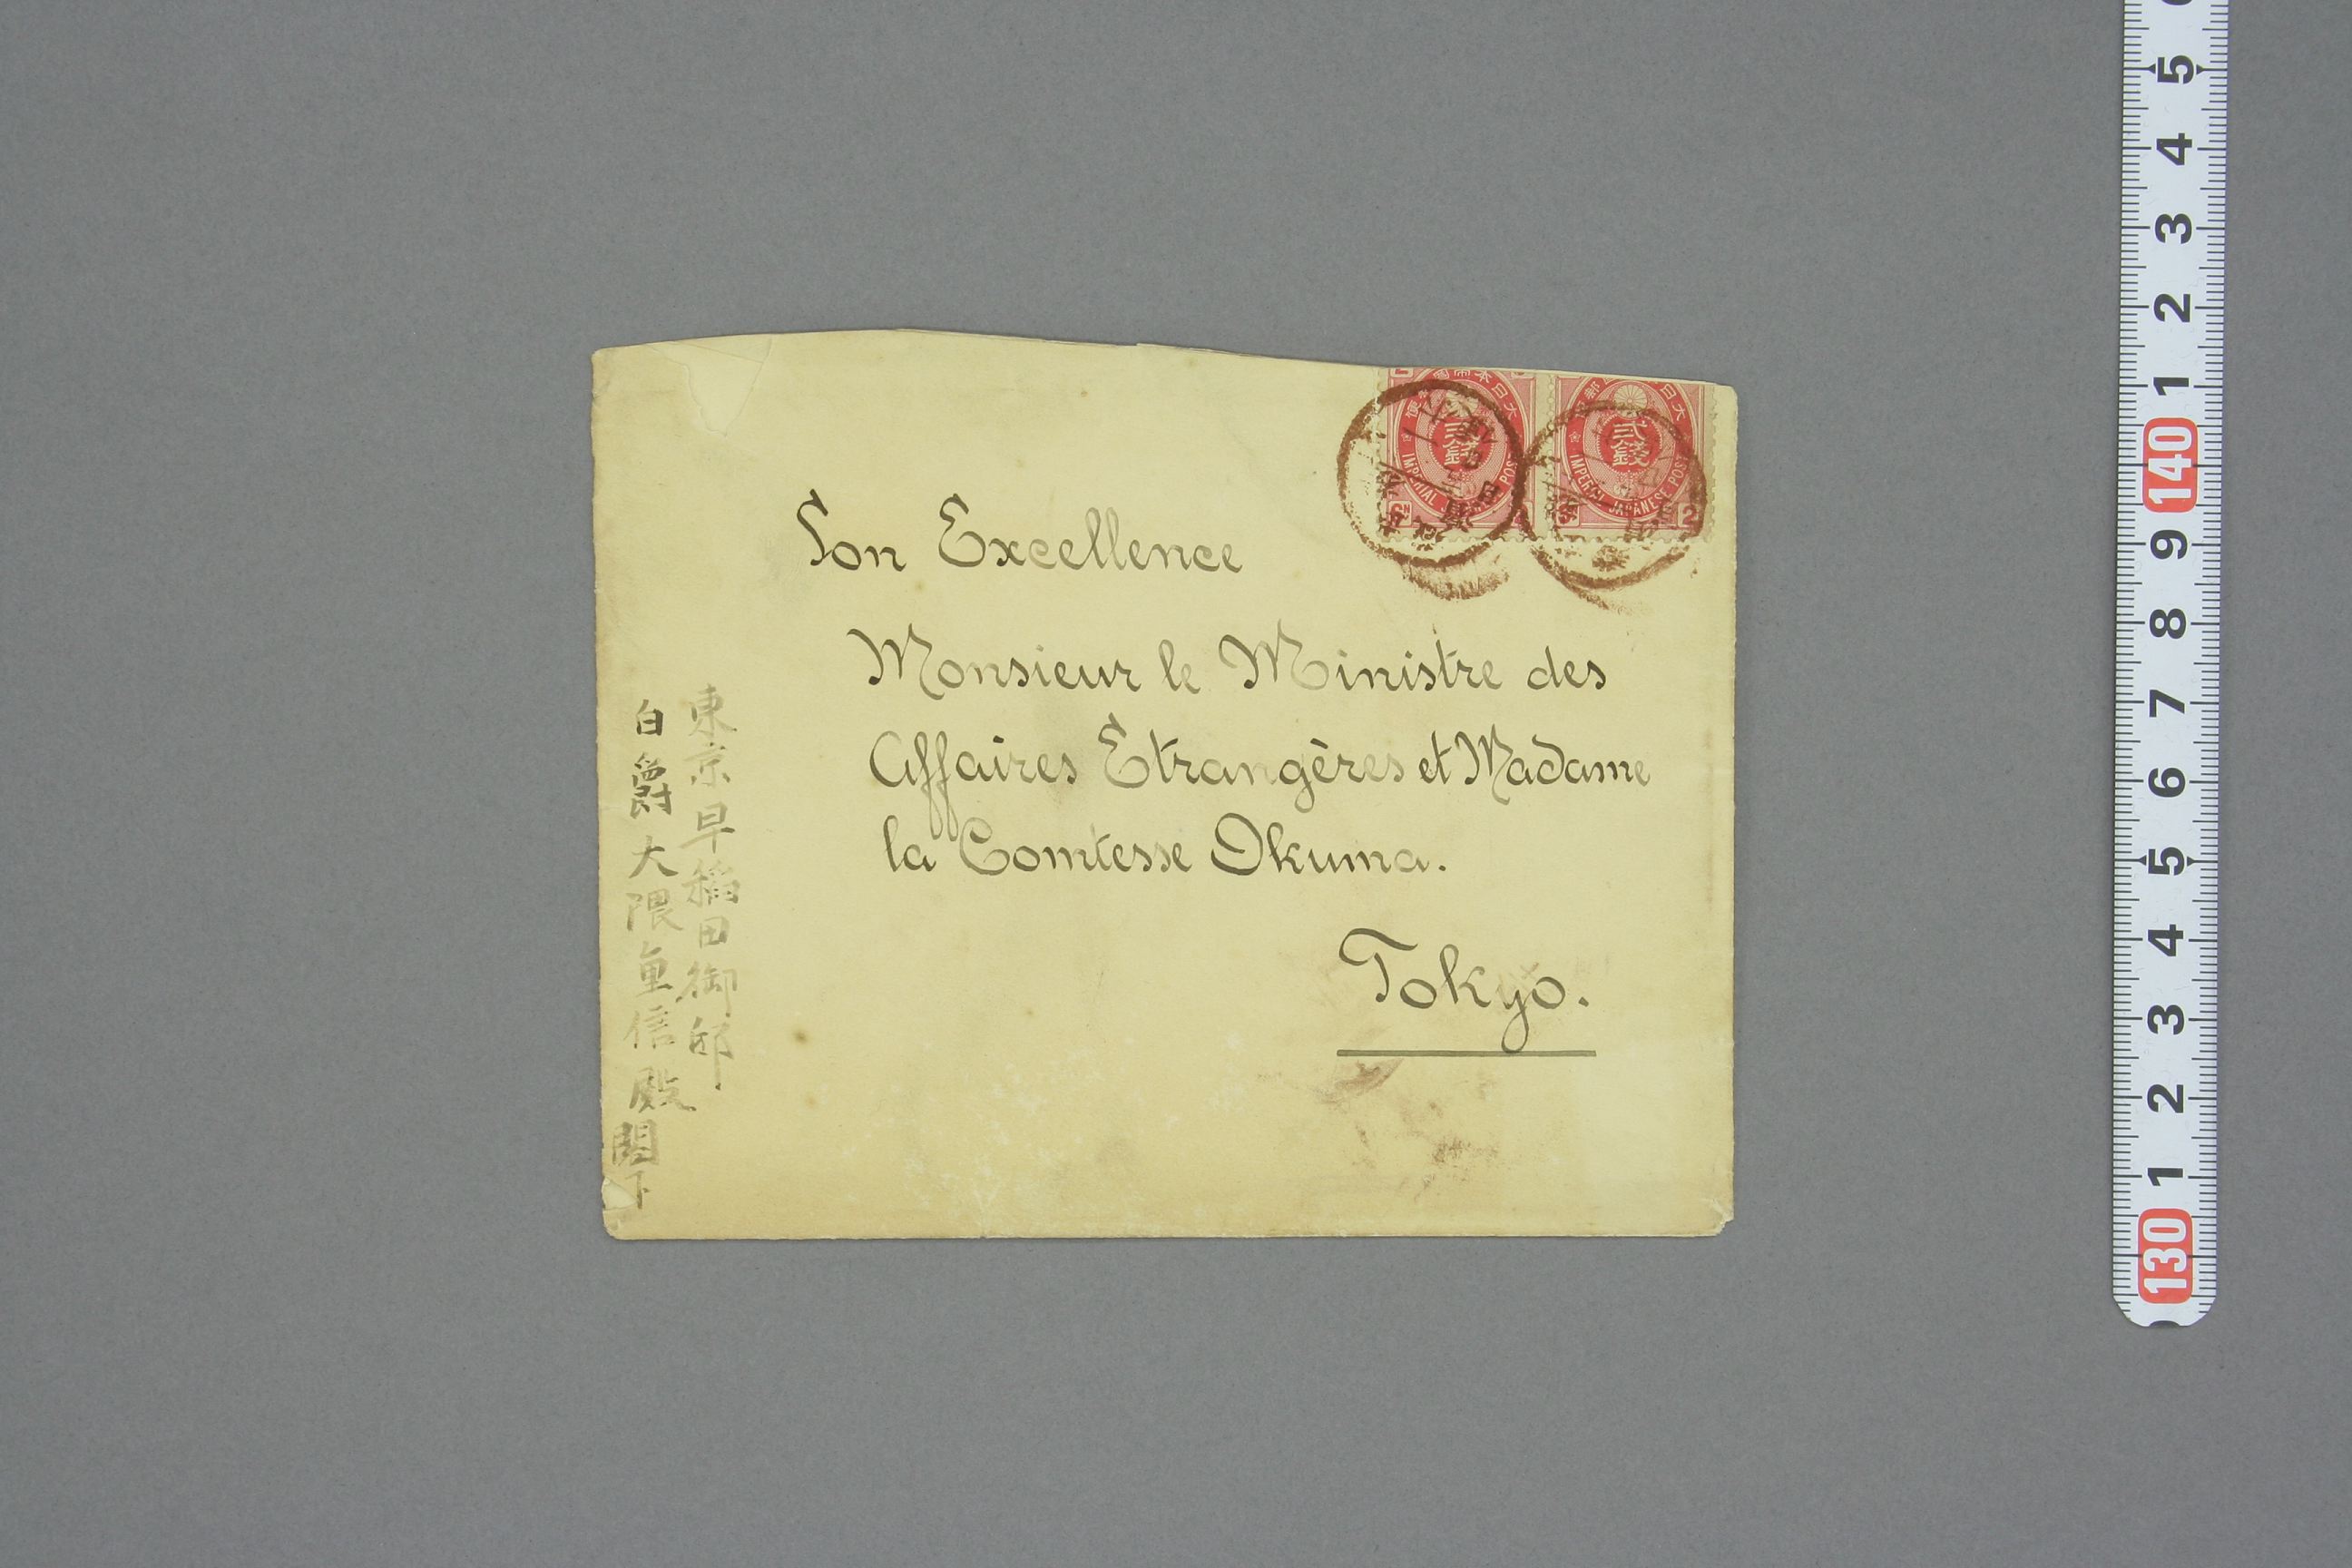 Son Excellence
Monsieur le Ministre des
Affaires Etrangères et Madame
la Comtesse Okuma.
Tokyo.
東京早稲田御邸
白爵大隈重信殿
閣下
大日本帝國郵便
貳錢
IMPERIAL JAPANESE POST
大日
貳錢
IMPERIAL JAPANESE POST
2
5
4
3
2
1
140
9
8
7
6
5
4
3
2
1
130